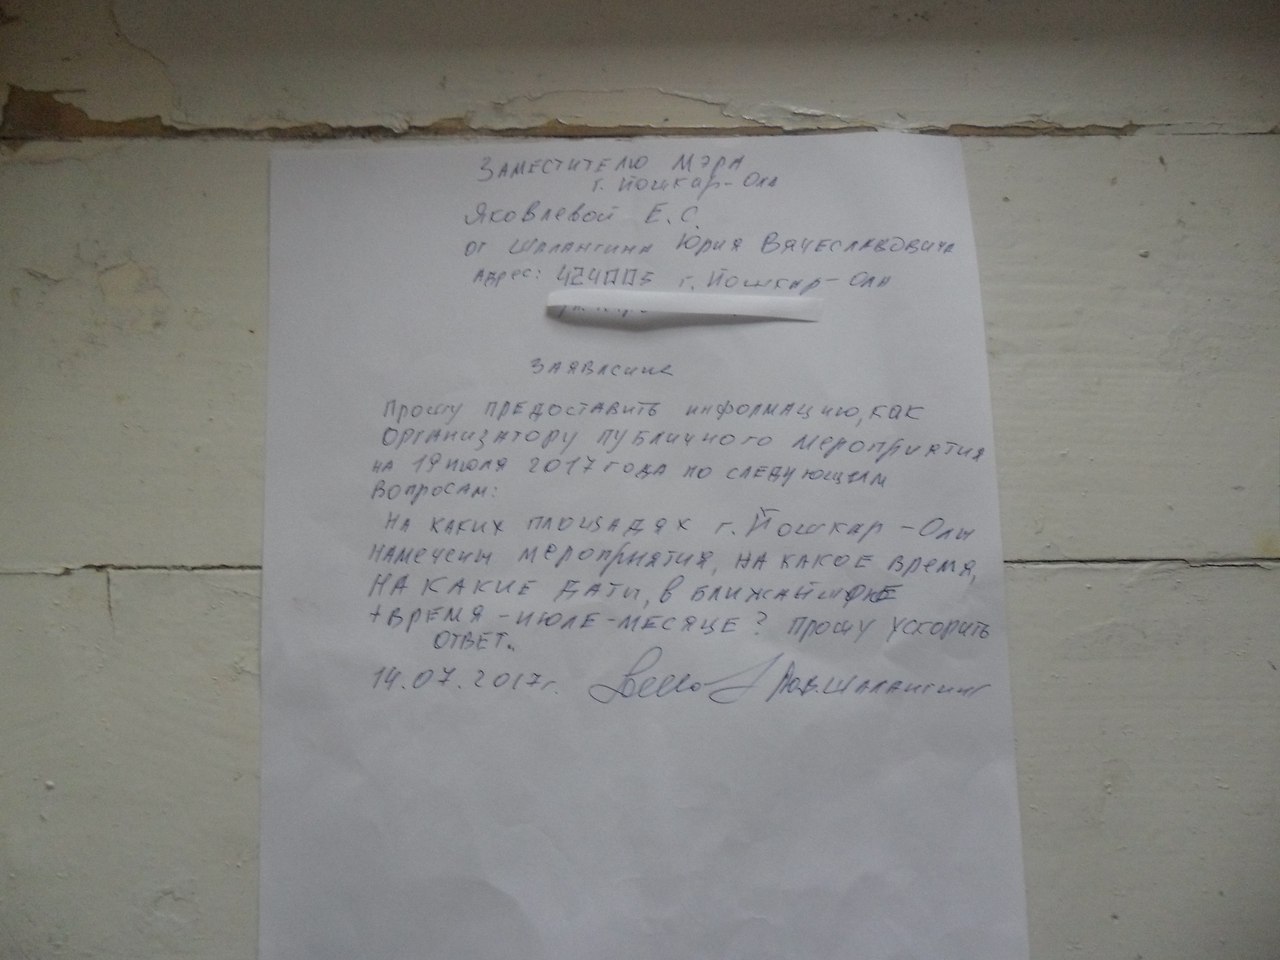 Заместителю Мэра
г. Йошкар-Олы
Яковлевой Е.С.
от Шалангина Юрия Вячеславовича
Адрес: г. Йошкар-Ола
Заявление
Прошу предоставить информацию, как
организатору публичного мероприятия
на 19 июля 2017 года по следующим
вопросам:
На каких площадях г. Йошкар-Олы
намечены мероприятия, на какое время,
на какие даты, в ближайшее
время - июле-месяце? Прошу ускорить
ответ.
14.07.2017г. Шалангин